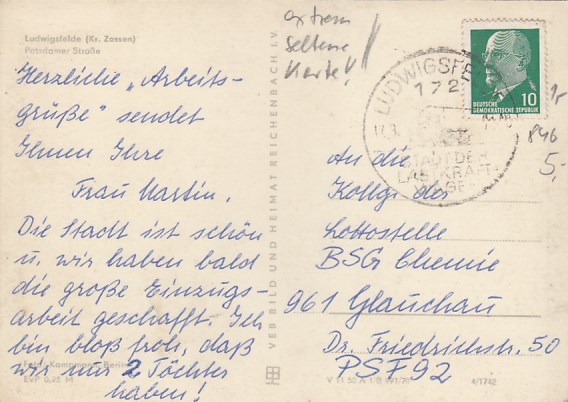 Ludwigsfelde (Kr. Zossen)
Potsdamer Straße
extrem
seltene
Karte!!
Herzliche „Arbeits-
grüße" sendet
Ihnen Ihre
Frau Martin.
Die Stadt ist schön
u. wir haben bald
die große Einzugs-
arbeit geschafft. Ich
bin bloß froh, daß
wir nur 2 Töchter
haben!
EVP 0,25 M
VEB BILD UND HEIMAT REICHENBACH I. V.
LUDWIGSFELDE
172
STADT DER
LASTKRAFT-
WAGEN
DEUTSCHE
DEMOKRATISCHE REPUBLIK
10
846
5,-
An die
Kollg. der
Lottostelle
BSG Chemie
961 Glauchau
Dr. Friedrichstr. 50
PSF 92
4/1742